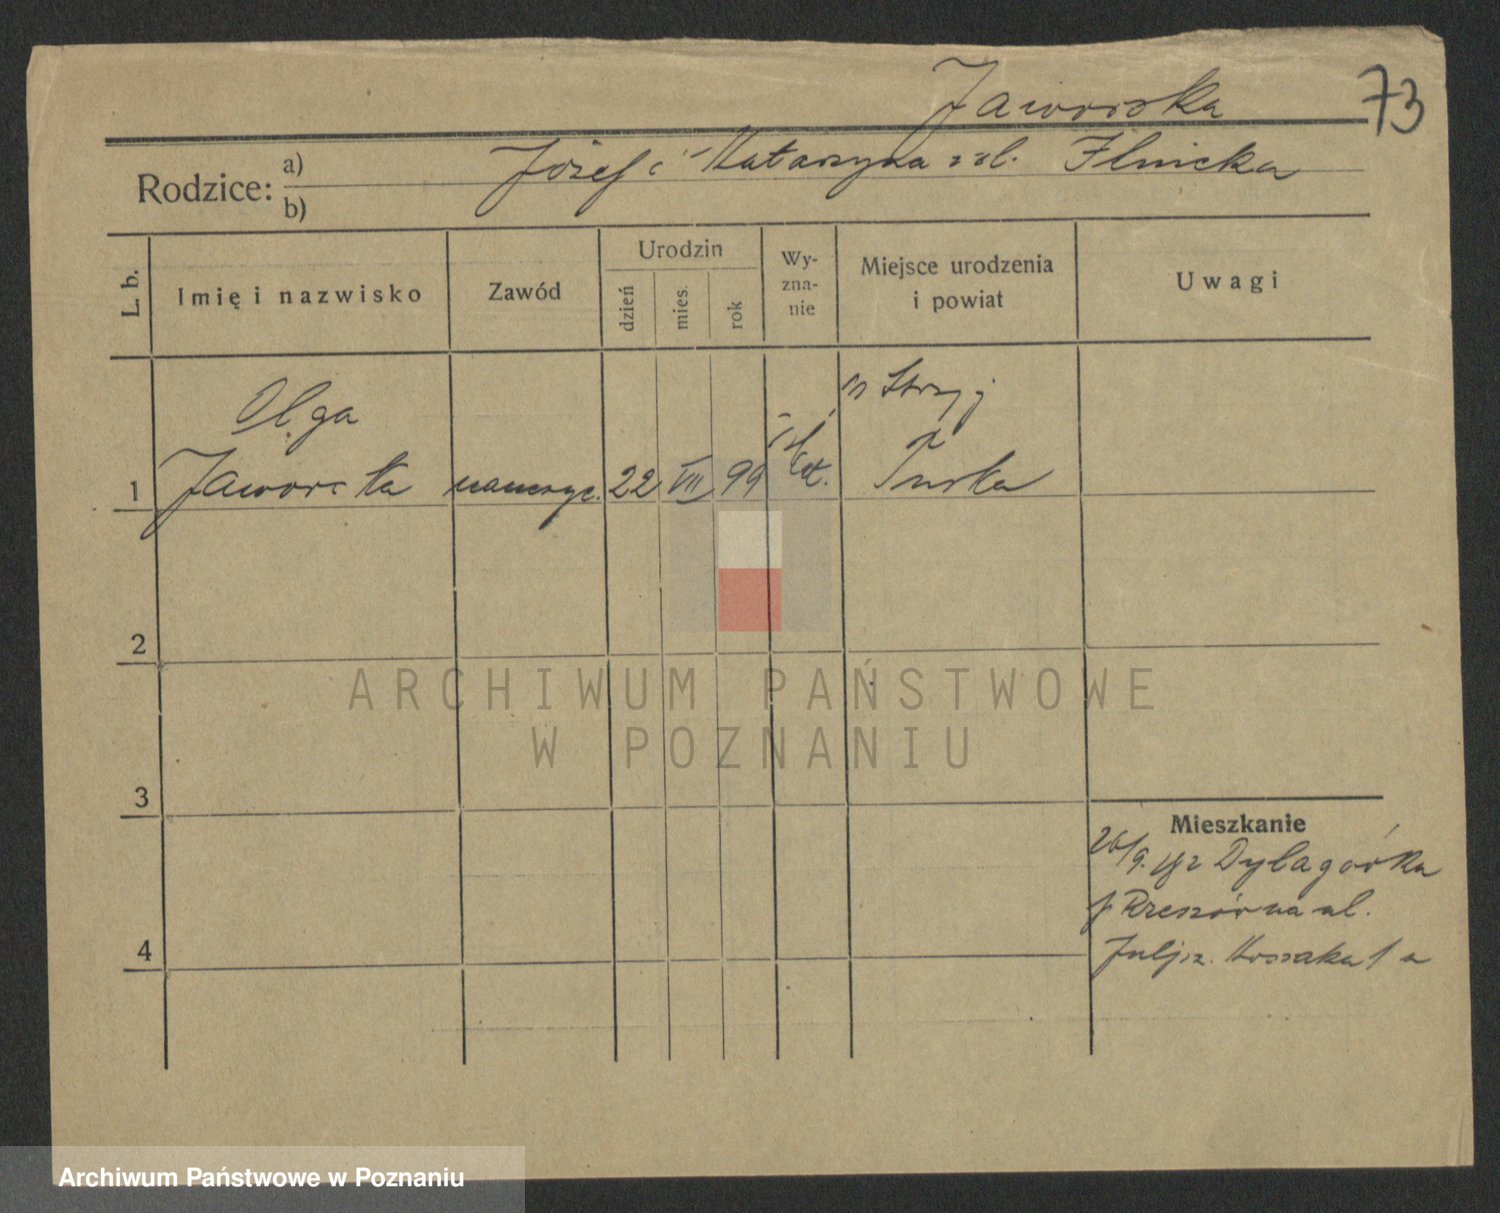 Jaworska
73
Rodzice: a) Józef i Katarzyna zd. Ilnicka
b)
L. b.
Imię i nazwisko
Zawód
Urodzin
dzień
mies.
rok
Wy-
zna-
nie
Miejsce urodzenia
i powiat
Uwagi
Olga
Jaworska
1
nauczyc.
22
VII
99
kat.
Stryj
Turka
2
3
4
Mieszkanie
26/9. Dylagówka
p Rzeszów na ul.
Julj. Kossaka 1 a
ARCHIWUM PAŃSTWOWE
W POZNANIU
Archiwum Państwowe w Poznaniu